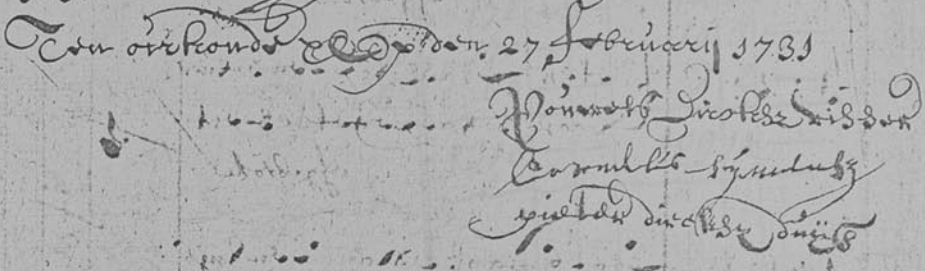 Ten oirkonde den 27 februarij 1731
Pouwels Dircksz ridder
Cornelis Symensz
pieter dircksz duijts